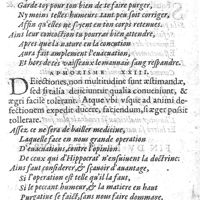 Garde toy pour ton bien de te faire purger,
Ny moins telles humeurs tant peu soit corriger,
Affin qu'elles ne soyent en ton corps retenues.
Ains leur concoction tu pourras bien attendre,
Apres que la nature en la concoction
Aura fait amplement l'euacuation,
Et hors de tes vaisseaux le demanait sans respandre.
APHORISME XXIII.
Deiectiones, non multitudine sunt æstimandæ,
sed si talia deiiciuntur qualia conueniunt, &
ægri facile tolerant. Atque vbi vsque ad animi de-
fectionem expedit ducere, faciendum, si æger possit
tollerare.
Assez ce ne sera de bailler medicine,
Laquelle face en nous grande operation
D'euacuations, entre l'opinion
De ceux qui d'Hippocrat' n'ensuiuent la doctrine:
Ains faut considerer, & sçauoir d'auantage,
Si l'operation est telle qu'il la faut,
Si le peccant humeur, & la matiere en haut
Purgatiue se fait sans nous faire dommage,